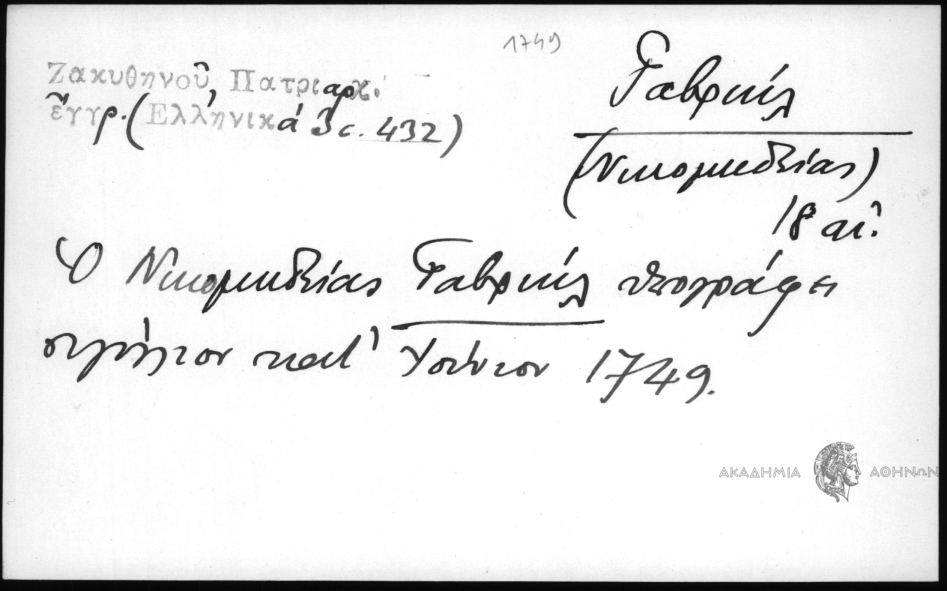 1749
Ζακυθηνοῦ, Πατριαρχ.
ἔγγρ. (Ἑλληνικά 3 σ. 432)
Γαβριήλ
(Νικομηδείας)
18 αἰ.
Ὁ Νικομηδείας Γαβριήλ ὑπογράφει
σιγίλλιον κατ' Ἰούνιον 1749.
ΑΚΑΔΗΜΙΑ ΑΘΗΝΩΝ